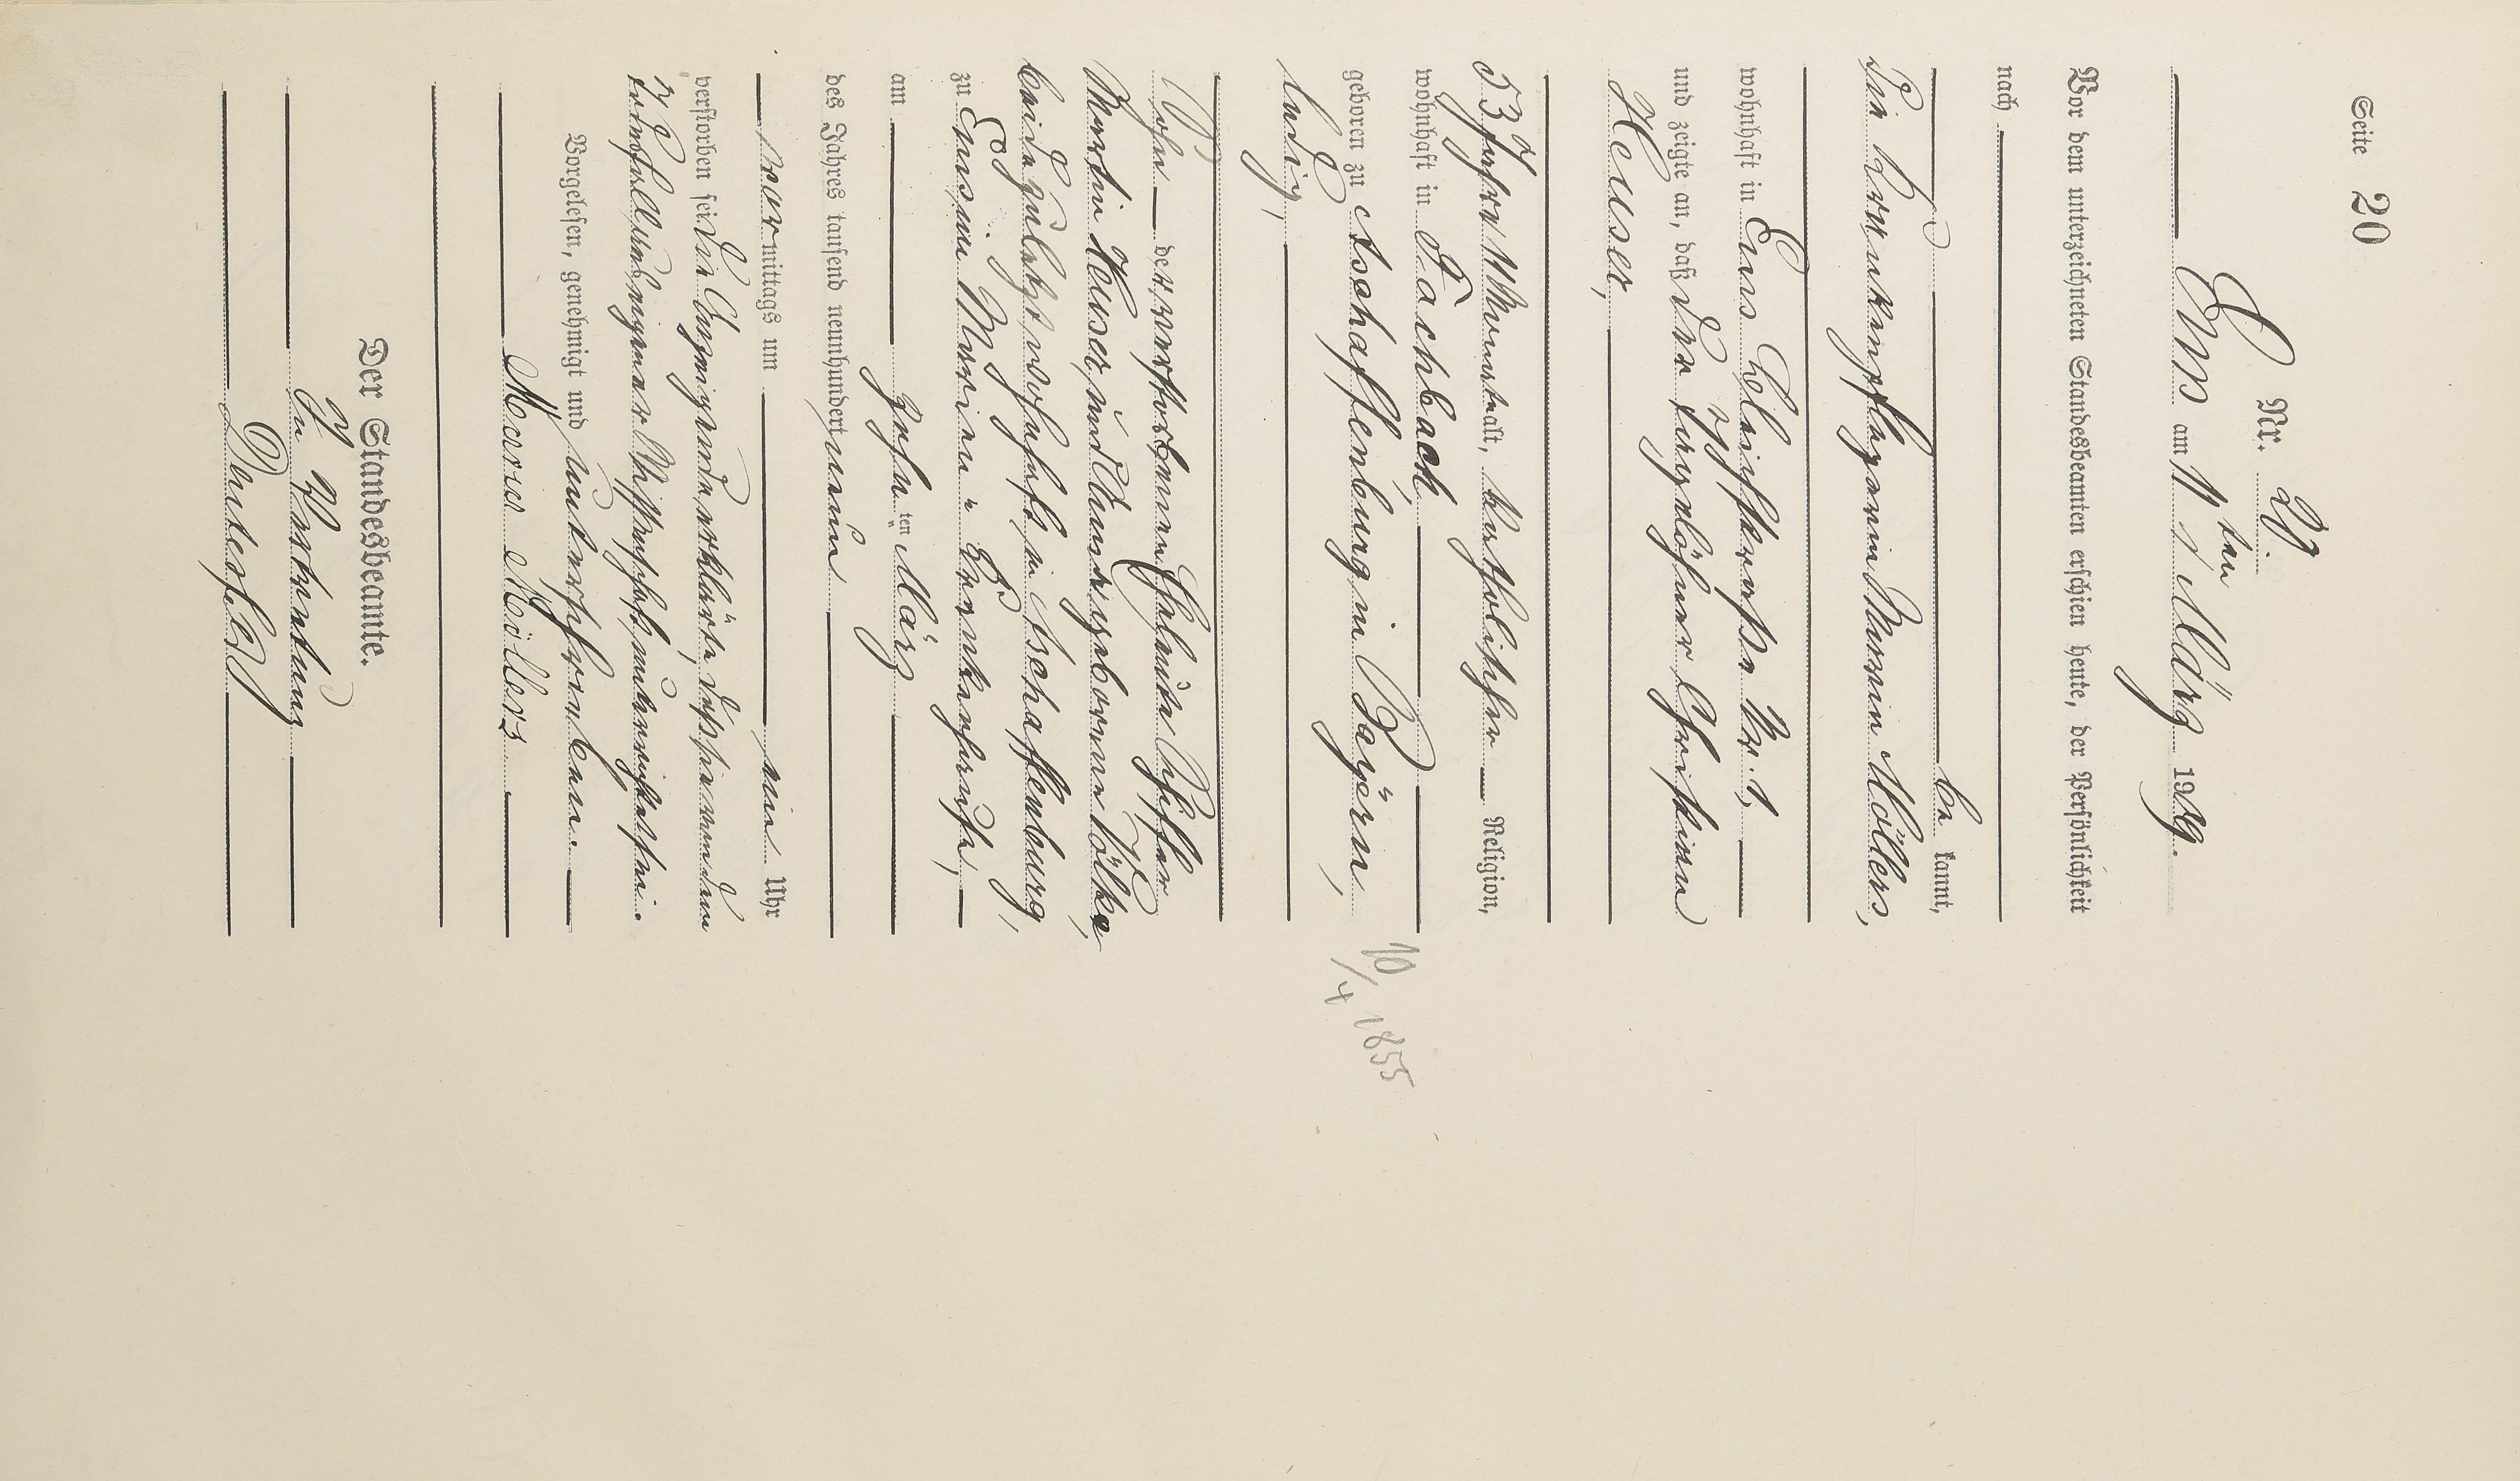 Seite 20
Nr. 29.
Ems am 11ten März 1909.
Vor dem unterzeichneten Standesbeamten erschien heute, der Persönlichkeit
nach
be kannt,
die Krankenpflegerin Maria Möllers,
wohnhaft in Ems Bleichstraße Nr. 1,
und zeigte an, daß der Tagelöhner Christian
Heuser,
53 Jahre 11 Monate alt, katholischer Religion,
wohnhaft in Fachbach,
geboren zu Aschaffenburg in Bayern,
10/4 1855
ledig,
Sohn der verstorbenen Eheleute
Martin Heuser und Anna geborene Völker,
beide zuletzt wohnhaft in Aschaffenburg,
zu Ems im Marien-Krankenhause,
am zehnten März
des Jahres tausend neunhundert neun
vor mittags um ein Uhr
verstorben sei. Die Anzeigende erklärte, daß sie von dem
Todesfall aus eigener Wissenschaft unterrichtet sei.
Vorgelesen, genehmigt und unterschrieben.
Maria Möllers
Der Standesbeamte.
In Vertretung